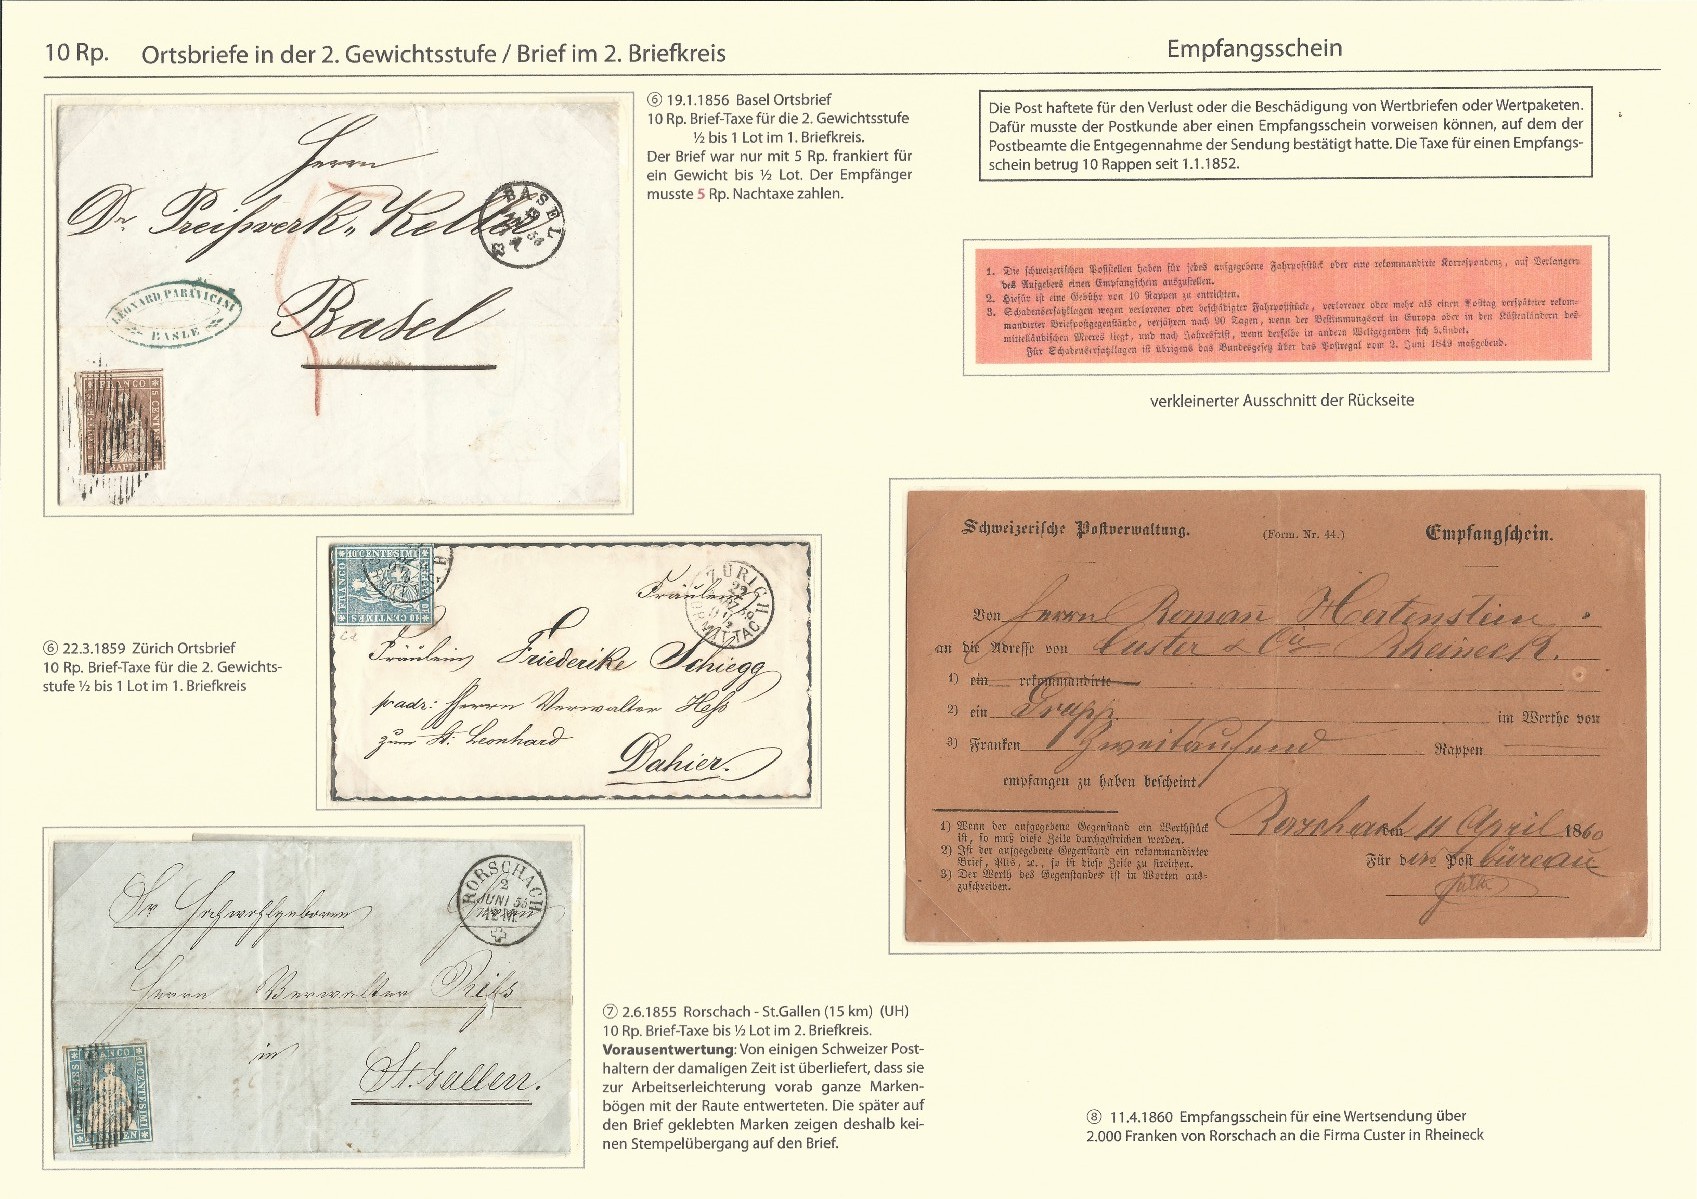 10 Rp. Ortsbriefe in der 2. Gewichtsstufe / Brief im 2. Briefkreis
Empfangsschein
⑥ 19.1.1856 Basel Ortsbrief
10 Rp. Brief-Taxe für die 2. Gewichtsstufe
½ bis 1 Lot im 1. Briefkreis.
Der Brief war nur mit 5 Rp. frankiert für
ein Gewicht bis ½ Lot. Der Empfänger
musste 5 Rp. Nachtaxe zahlen.
Herrn
Dr Preiswerk-Keller
Basel
BASEL
LEONARD PARAVICINI
BASLE
FRANCO
Die Post haftete für den Verlust oder die Beschädigung von Wertbriefen oder Wertpaketen.
Dafür musste der Postkunde aber einen Empfangsschein vorweisen können, auf dem der
Postbeamte die Entgegennahme der Sendung bestätigt hatte. Die Taxe für einen Empfangs-
schein betrug 10 Rappen seit 1.1.1852.
1. Die schweizerischen Poststellen haben für jedes aufgegebene Fahrpoststück oder eine rekommandirte Korrespondenz, auf Verlangen
des Aufgebers einen Empfangschein auszustellen.
2. Hiefür ist eine Gebühr von 10 Rappen zu entrichten.
3. Schadensersatzklagen wegen verlorener oder beschädigter Fahrpoststücke, verlorener oder mehr als einen Posttag verspäteter rekom-
mandirter Briefpostgegenstände, verjähren nach 90 Tagen, wenn der Bestimmungsort in Europa oder in den Küstenländern des
mittelländischen Meeres liegt, und nach Jahresfrist, wenn derselbe in andern Weltgegenden sich befindet.
Für Schadensersatzklagen ist übrigens das Bundesgesetz über das Postregal vom 2. Juni 1849 maßgebend.
verkleinerter Ausschnitt der Rückseite
⑥ 22.3.1859 Zürich Ortsbrief
10 Rp. Brief-Taxe für die 2. Gewichts-
stufe ½ bis 1 Lot im 1. Briefkreis
10 CENTESIMI
FRANCO
10 CENTIMES
ZÜRICH
VORMITTAG
Fräulein
Fräulein Friederike Schiegg
p. adr: Herrn Verwalter Hess
zum St. Leonhard
Dahier.
Schweizerische Postverwaltung. (Form. Nr. 44.) Empfangschein.
Von Herrn Roman Hertenstein
an die Adresse von Custer & Cie Rheineck.
1) ein rekommandirte
2) ein Grupp. im Werthe von
3) Franken Zweitausend Rappen
empfangen zu haben bescheint,
Rorschach den 11 April 1860
Für das Postbüreau
1) Wenn der aufgegebene Gegenstand ein Werthstück
ist, so muß diese Zeile durchgestrichen werden.
2) Ist der aufgegebene Gegenstand ein rekommandirter
Brief, Akts, &c., so ist diese Zeile zu streichen.
3) Der Werth des Gegenstandes ist in Worten aus-
zuschreiben.
Sr Hochwohlgeboren Herrn
Herrn Verwalter Riss
in
St. Gallen.
RORSCHACH
2
JUNI 55
FRANCO
10 CENTESIMI
⑦ 2.6.1855 Rorschach - St.Gallen (15 km) (UH)
10 Rp. Brief-Taxe bis ½ Lot im 2. Briefkreis.
Vorausentwertung: Von einigen Schweizer Post-
haltern der damaligen Zeit ist überliefert, dass sie
zur Arbeitserleichterung vorab ganze Marken-
bögen mit der Raute entwerteten. Die später auf
den Brief geklebten Marken zeigen deshalb kei-
nen Stempelübergang auf den Brief.
⑧ 11.4.1860 Empfangsschein für eine Wertsendung über
2.000 Franken von Rorschach an die Firma Custer in Rheineck